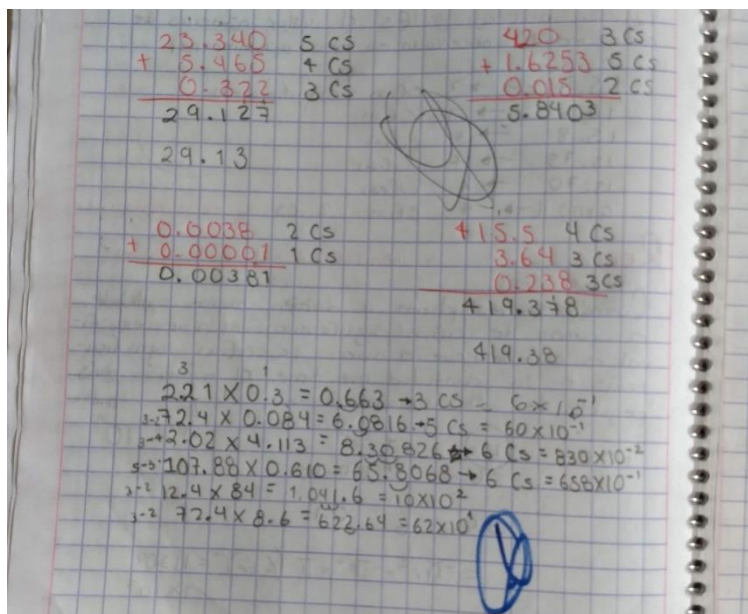 23.340 5 CS
+ 5.465 4 CS
0.322 3 CS
29.127
29.13
420 3 CS
+ 1.6253 5 CS
0.015 2 CS
5.8403
0.0038 2 CS
+ 0.00001 1 CS
0.00381
415.5 4 CS
3.64 3 CS
0.238 3 CS
419.378
419.38
3 1
221 × 0.3 = 0.663 → 3 CS = 6×10⁻¹
3-2 72.4 × 0.084 = 6.0816 → 5 CS = 60×10⁻¹
3-4 2.02 × 4.113 = 8.30826 → 6 CS = 830×10⁻²
5-3 107.88 × 0.610 = 65.8068 → 6 CS = 658×10⁻¹
3-2 12.4 × 84 = 1,041.6 = 10×10²
3-2 72.4 × 8.6 = 622.64 = 62×10¹